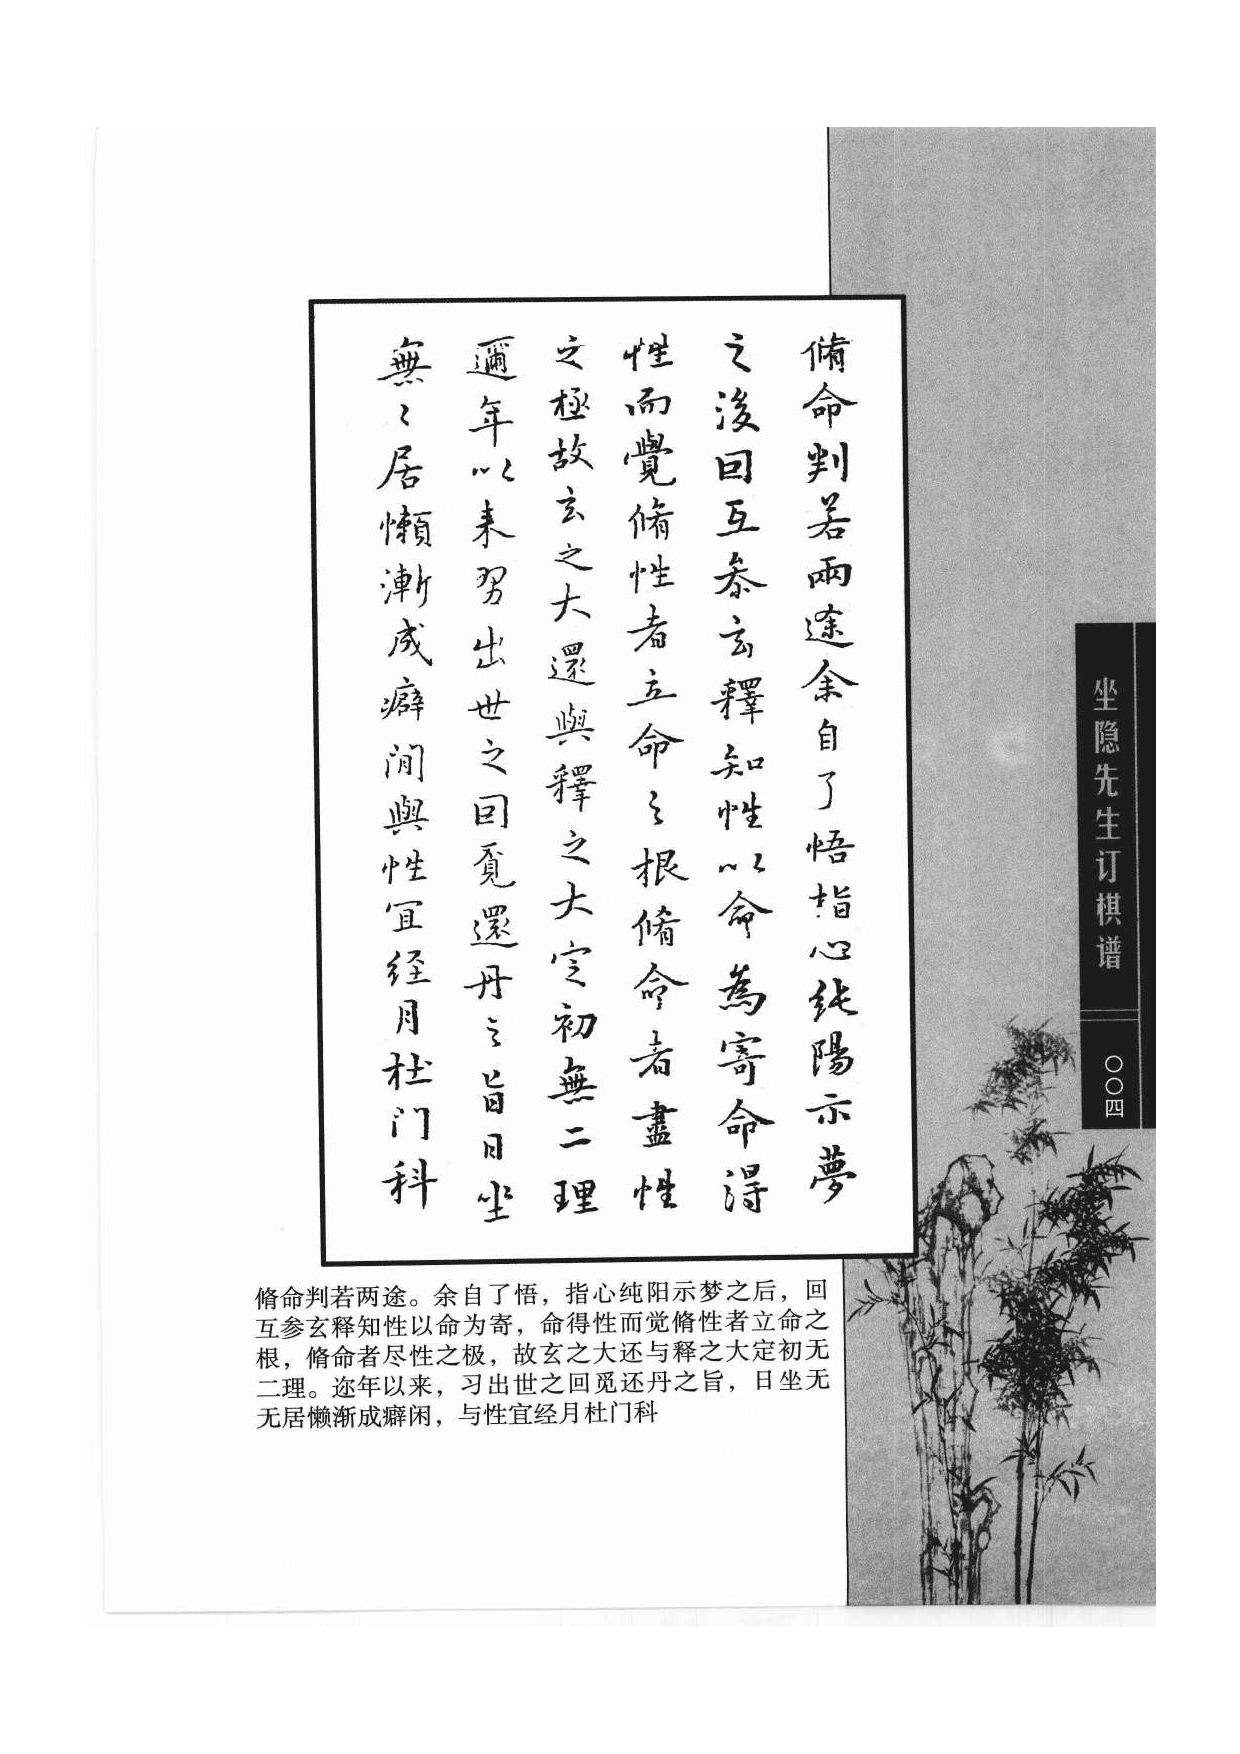 脩命判若兩途余自了悟指心純陽示夢
之後回互叅玄釋知性以命為寄命得
性而覺脩性者立命之根脩命者盡性
之極故玄之大還與釋之大定初無二理
邇年以来習出世之回覔還丹之旨日坐
無〻居懶漸成癖閒與性宜経月杜门科
脩命判若两途。余自了悟，指心纯阳示梦之后，回
互参玄释知性以命为寄，命得性而觉脩性者立命之
根，脩命者尽性之极，故玄之大还与释之大定初无
二理。迩年以来，习出世之回觅还丹之旨，日坐无
无居懒渐成癖闲，与性宜经月杜门科
坐隐先生订棋谱
〇〇四